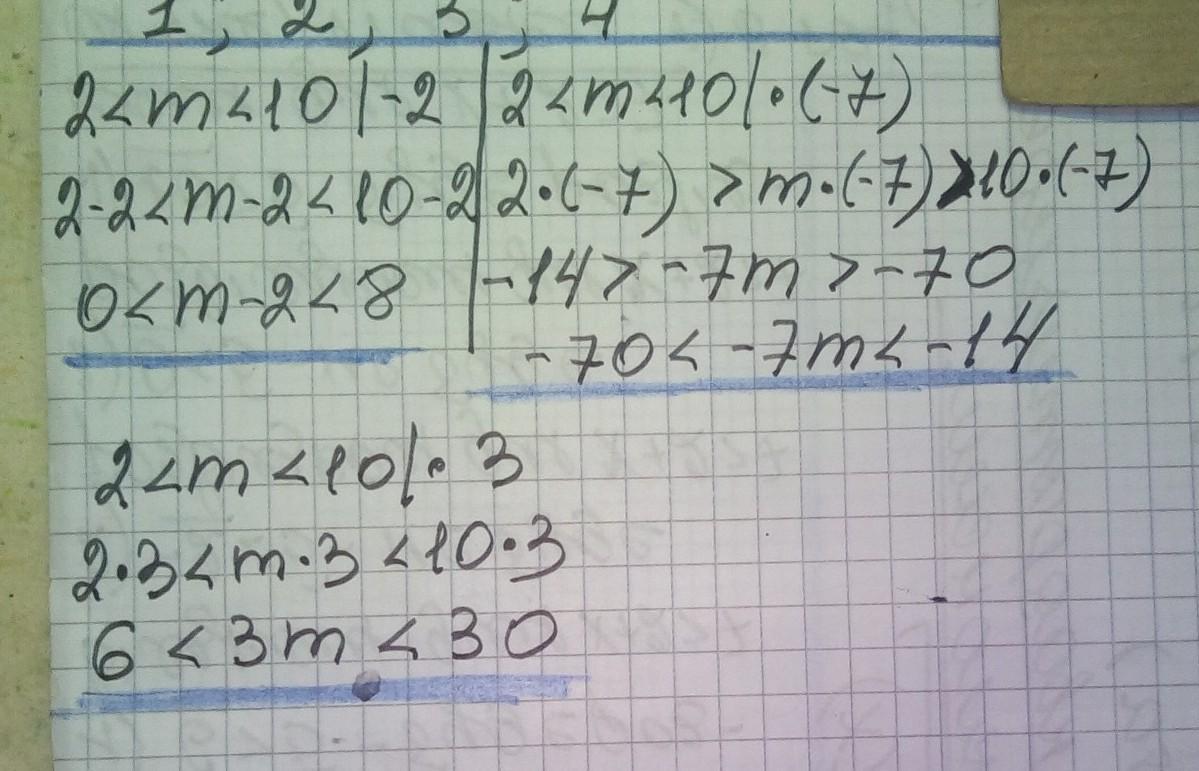 1; 2; 3; 4
2<m<10|-2
2-2<m-2<10-2
0<m-2<8
2<m<10|·(-7)
2·(-7)>m·(-7)>10·(-7)
-14>-7m>-70
-70<-7m<-14
2<m<10|·3
2·3<m·3<10·3
6<3m<30